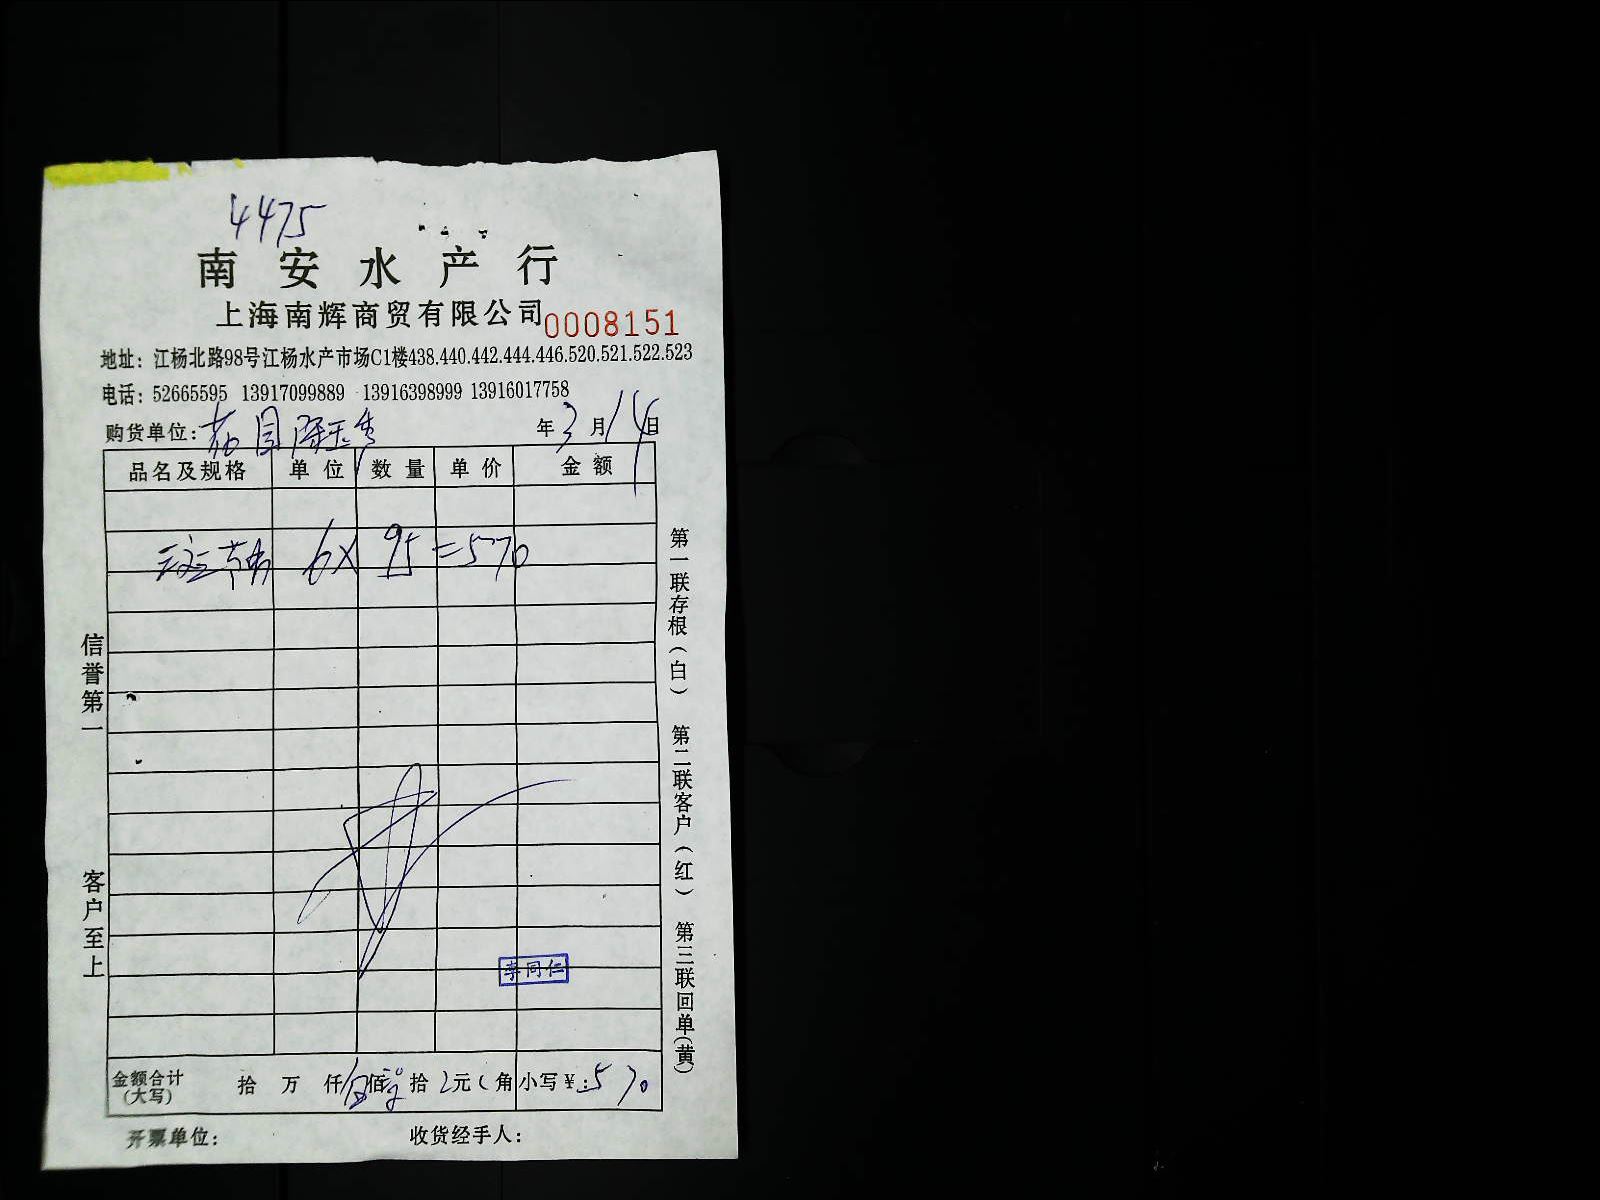 4475
南安水产行
上海南辉商贸有限公司 0008151
地址：江杨北路98号江杨水产市场C1楼438.440.442.444.446.520.521.522.523
电话：52665595 13917099889 13916398999 13916017758
购货单位： 年3月14日
品名及规格 单位 数量 单价 金额
6X 95=570
信誉第一 客户至上
第一联存根(白) 第二联客户(红) 第三联回单(黄)
李同仁
金额合计(大写) 拾 万 仟伍佰 拾 元 角 小写￥：570
开票单位： 收货经手人：